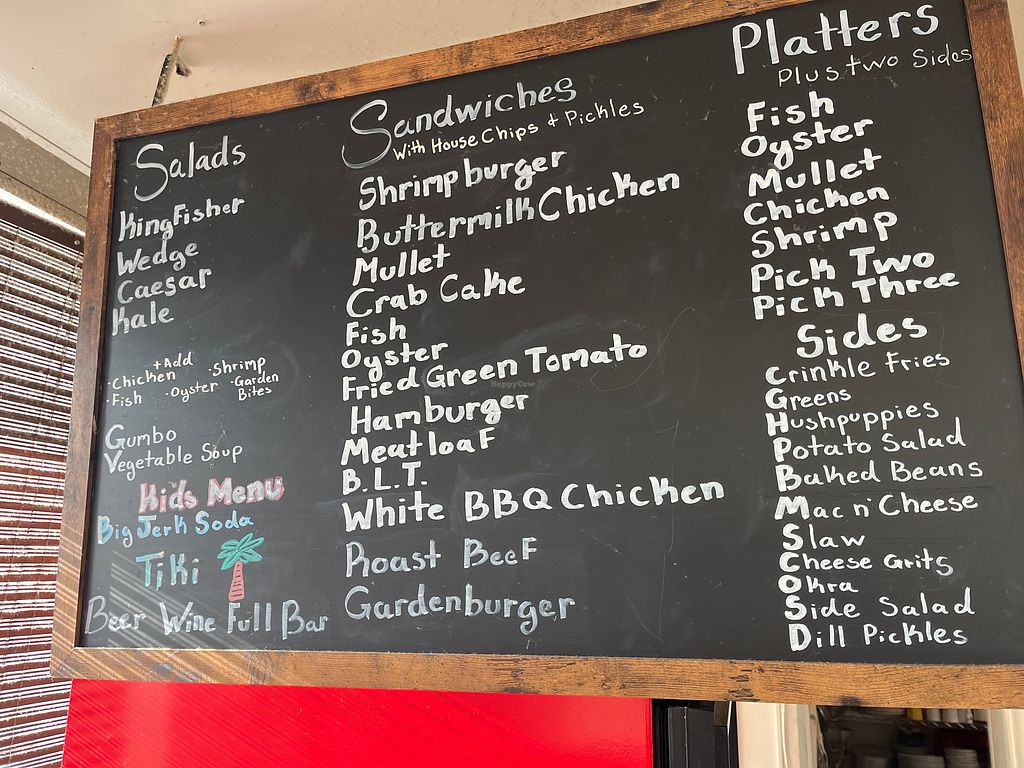 Salads
KingFisher
Wedge
Caesar
Kale
+Add
·Chicken ·Shrimp
·Fish ·Oyster ·Garden Bites
Gumbo
Vegetable Soup
Kids Menu
Big Jerk Soda
Tiki
Beer Wine Full Bar
Sandwiches
With House Chips + Pickles
Shrimpburger
Buttermilk Chicken
Mullet
Crab Cake
Fish
Oyster
Fried Green Tomato
Hamburger
Meatloaf
B.L.T.
White BBQ Chicken
Roast Beef
Gardenburger
Platters
Plus two Sides
Fish
Oyster
Mullet
Chicken
Shrimp
Pick Two
Pick Three
Sides
Crinkle Fries
Greens
Hushpuppies
Potato Salad
Baked Beans
Mac n' Cheese
Slaw
Cheese Grits
Okra
Side Salad
Dill Pickles
HappyCow